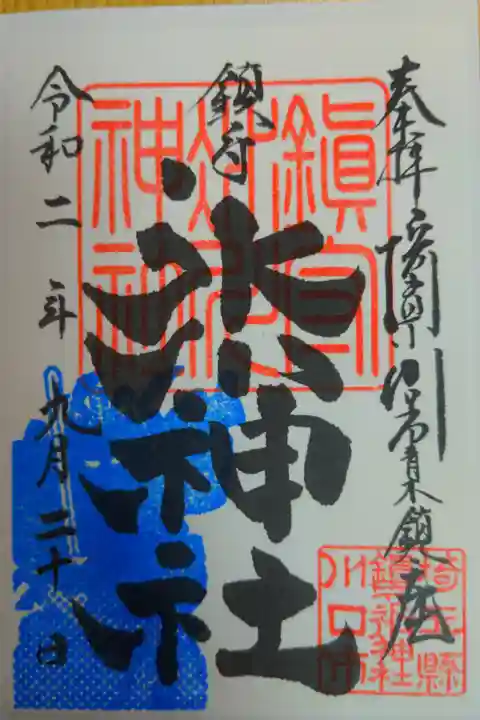 奉拝 埼玉県川口市青木鎮座
鎮守
氷川神社
令和二年九月二十日
鎮守
氷川
神社
埼玉縣
鎮守氷川神社
川口市